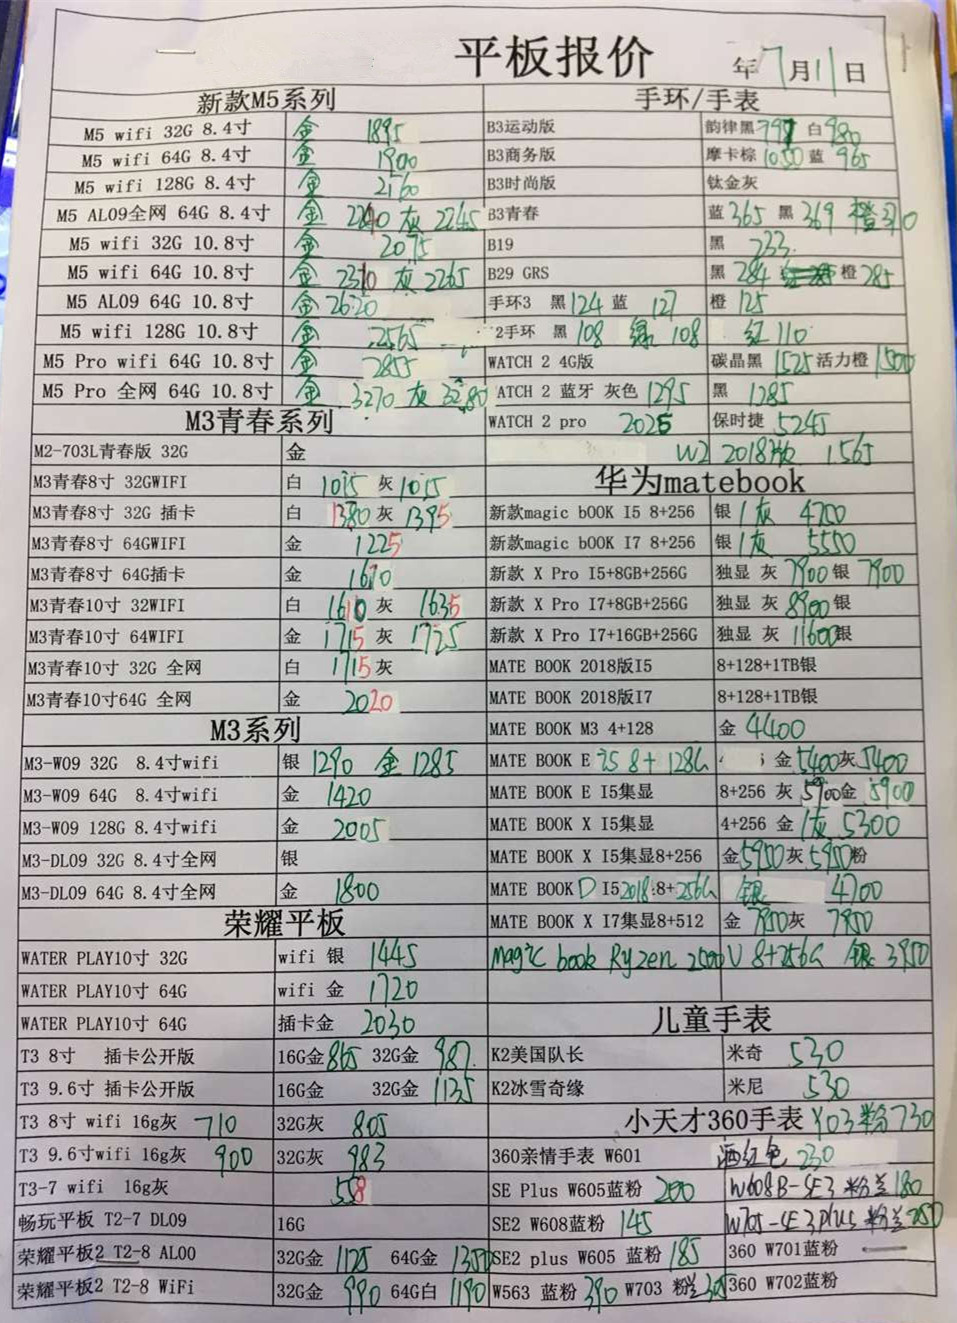 平板报价 年7月11日
新款M5系列
M5 wifi 32G 8.4寸 金 1895
M5 wifi 64G 8.4寸 金 1900
M5 wifi 128G 8.4寸 金 2160
M5 AL09全网 64G 8.4寸 金 2240 灰 2245
M5 wifi 32G 10.8寸 金 2075
M5 wifi 64G 10.8寸 金 2310 灰 2265
M5 AL09 64G 10.8寸 金 2620
M5 wifi 128G 10.8寸 金 2565
M5 Pro wifi 64G 10.8寸 金 2855
M5 Pro 全网 64G 10.8寸 金 3270 灰 3280
M3青春系列
M2-703L青春版 32G 金
M3青春8寸 32GWIFI 白 1015 灰 1015
M3青春8寸 32G 插卡 白 1380 灰 1395
M3青春8寸 64GWIFI 金 1225
M3青春8寸 64G插卡 金 1610
M3青春10寸 32WIFI 白 1610 灰 1635
M3青春10寸 64WIFI 金 1715 灰 1725
M3青春10寸 32G 全网 白 1715 灰
M3青春10寸64G 全网 金 2020
M3系列
M3-W09 32G 8.4寸wifi 银 1290 金 1285
M3-W09 64G 8.4寸wifi 金 1420
M3-W09 128G 8.4寸wifi 金 2005
M3-DL09 32G 8.4寸全网 银
M3-DL09 64G 8.4寸全网 金 1800
荣耀平板
WATER PLAY10寸 32G wifi 银 1445
WATER PLAY10寸 64G wifi 金 1720
WATER PLAY10寸 64G 插卡金 2030
T3 8寸 插卡公开版 16G金 865 32G金 987
T3 9.6寸 插卡公开版 16G金 32G金 1135
T3 8寸 wifi 16g灰 710 32G灰 805
T3 9.6寸wifi 16g灰 900 32G灰 983
T3-7 wifi 16g灰 558
畅玩平板 T2-7 DL09 16G
荣耀平板2 T2-8 AL00 32G金 1125 64G金 1350
荣耀平板2 T2-8 WiFi 32G金 990 64G白 1190
手环/手表
B3运动版 韵律黑 白 980
B3商务版 摩卡棕 1050 蓝 965
B3时尚版 钛金灰
B3青春 蓝 365 黑 369 橙
B19 黑 233
B29 GRS 黑 284 橙 285
手环3 黑 124 蓝 127 橙 125
2手环 黑 108 绿 108 红 110
WATCH 2 4G版 碳晶黑 1525 活力橙 1500
ATCH 2 蓝牙 灰色 1295 黑 1285
WATCH 2 pro 2025 保时捷 5245
W2 2018版 1565
华为matebook
新款magic bOOK I5 8+256 银/灰 4700
新款magic bOOK I7 8+256 银/灰 5550
新款 X Pro I5+8GB+256G 独显 灰 7900 银 7900
新款 X Pro I7+8GB+256G 独显 灰 8900 银
新款 X Pro I7+16GB+256G 独显 灰 11600 银
MATE BOOK 2018版I5 8+128+1TB银
MATE BOOK 2018版I7 8+128+1TB银
MATE BOOK M3 4+128 金 4400
MATE BOOK E I5 8+128G 金 5400 灰 5400
MATE BOOK E I5集显 8+256 灰 5900 金 5900
MATE BOOK X I5集显 4+256 金/灰 5300
MATE BOOK X I5集显8+256 金 5950 灰 5950 粉
MATE BOOK D I5 2018:8+256G 银 4700
MATE BOOK X I7集显8+512 金 7850 灰 7850
Magic book Ryzen 2500U 8+256G 银 3950
儿童手表
K2美国队长 米奇 530
K2冰雪奇缘 米尼 530
小天才360手表 Y03 粉 730
360亲情手表 W601 酒红色 230
SE Plus W605蓝粉 200 W608B-SE3 粉兰 180
SE2 W608蓝粉 145 W705-SE3plus 粉兰 250
SE2 plus W605 蓝粉 185 360 W701蓝粉
W563 蓝粉 390 W703 粉兰 305 360 W702蓝粉